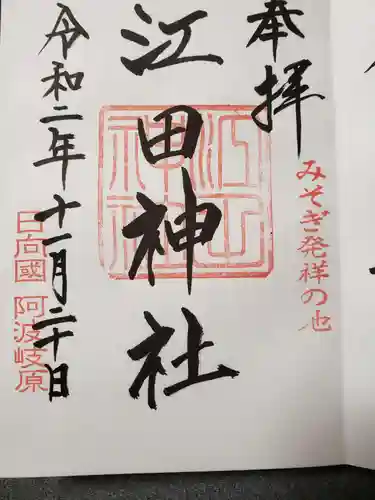 奉拝
みそぎ発祥の地
江田神社
江田神社
令和二年十一月二十日
日向國 阿波岐原